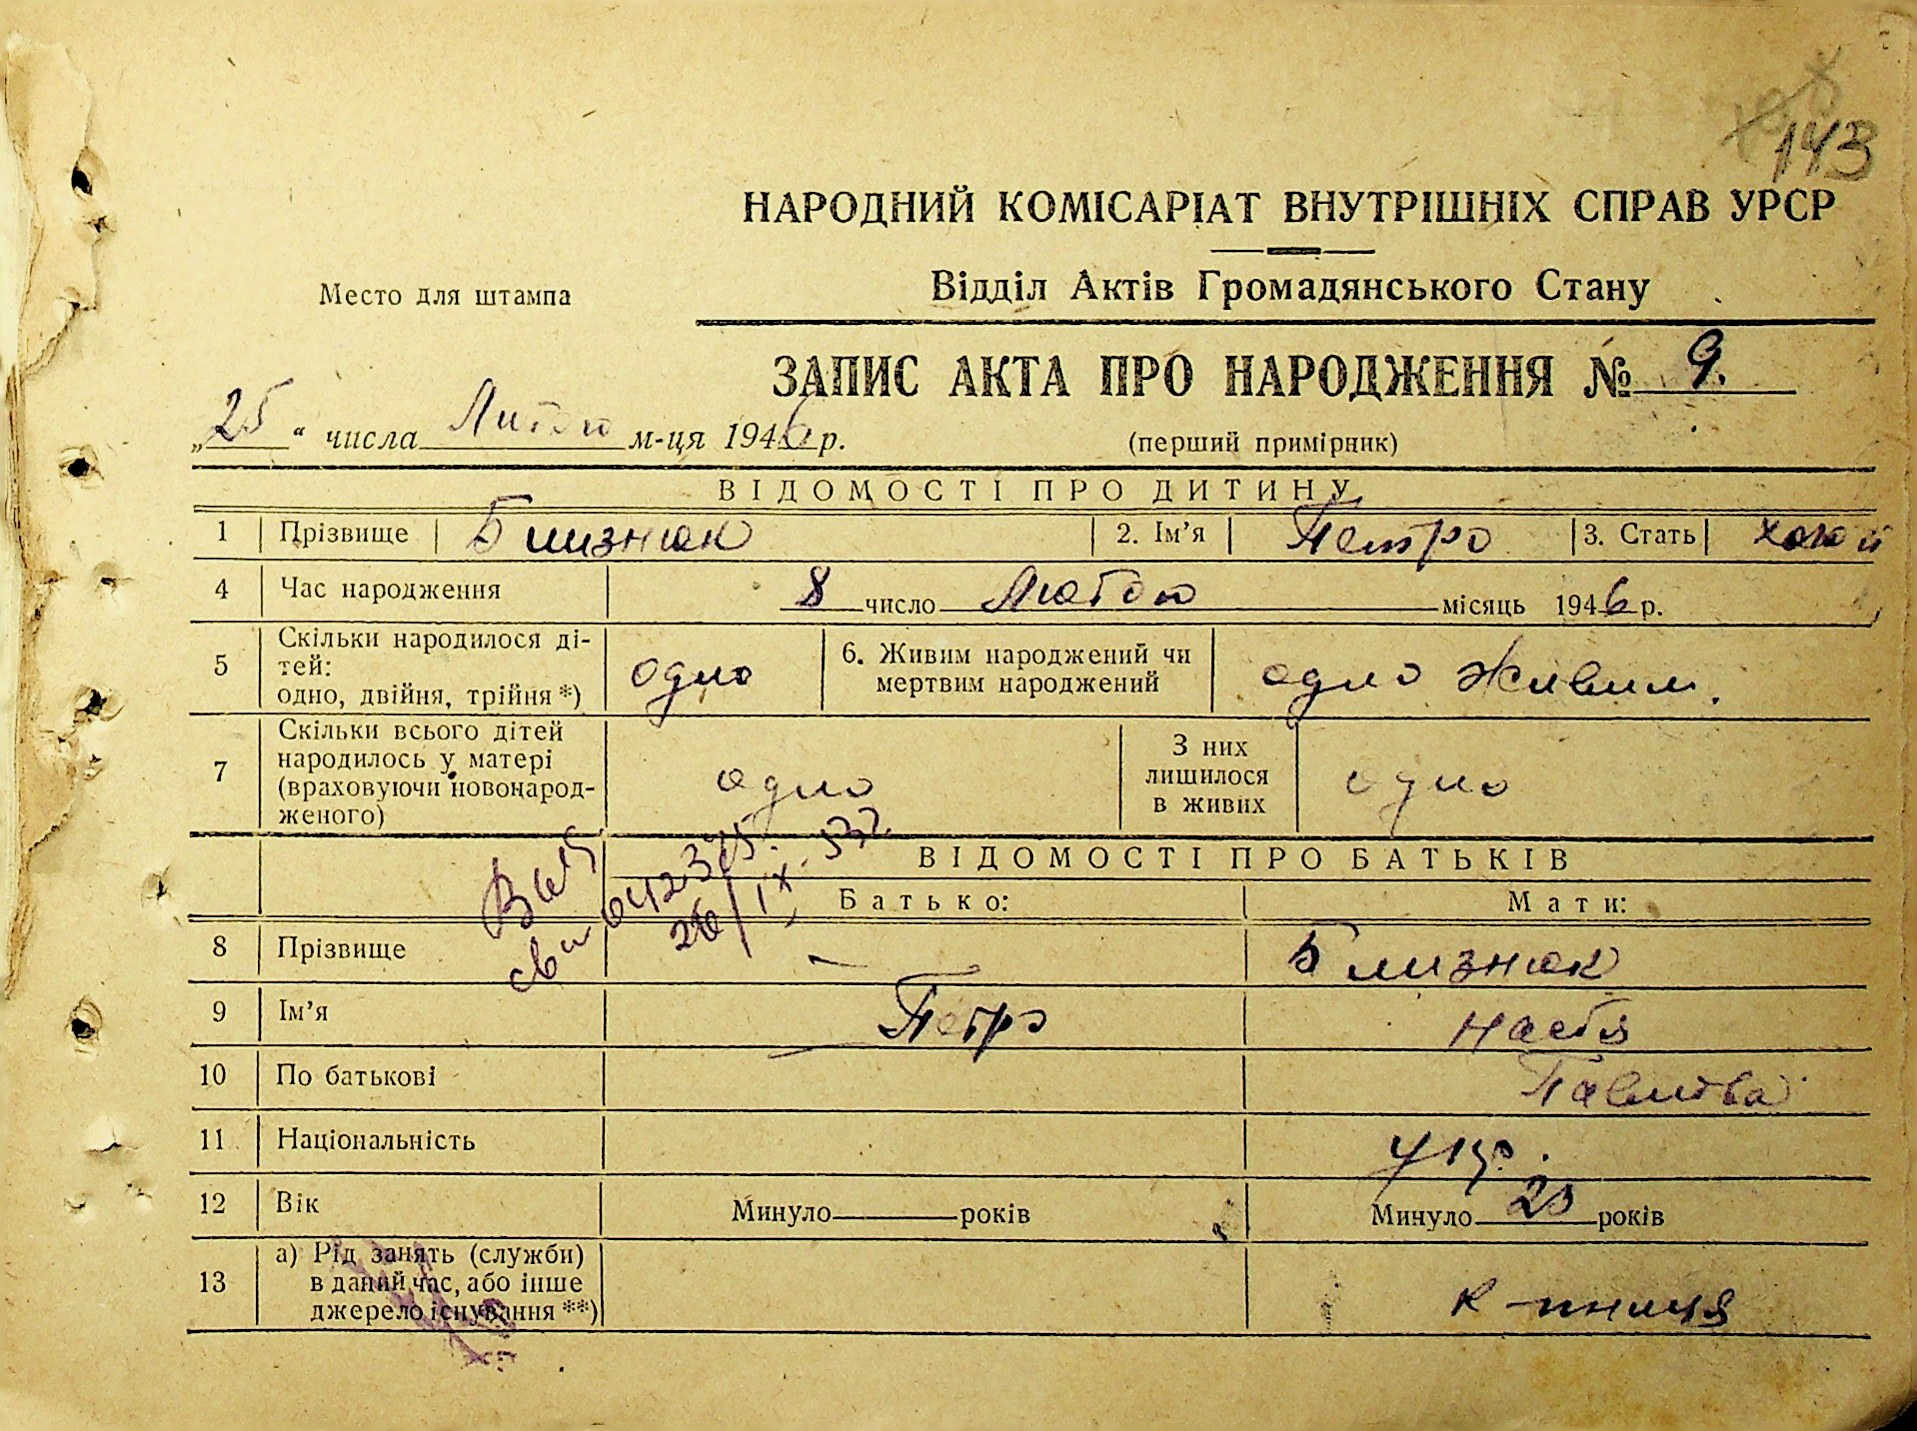 143
НАРОДНИЙ КОМІСАРІАТ ВНУТРІШНІХ СПРАВ УРСР
Место для штампа
Відділ Актів Громадянського Стану
ЗАПИС АКТА ПРО НАРОДЖЕННЯ № 9.
„25“ числа Лютого м-ця 1946 р.
(перший примірник)
ВІДОМОСТІ ПРО ДИТИНУ
1 Прізвище Близнюк 2. Ім’я Петро 3. Стать
4 Час народження 8 число Лютого місяць 1946 р.
5 Скільки народилося ді-
тей:
одно, двійня, трійня *) одно 6. Живим народжений чи
мертвим народжений одно живим.
7 Скільки всього дітей
народилось у матері
(враховуючи новонарод-
женого) одно З них
лишилося
в живих одно
ВІДОМОСТІ ПРО БАТЬКІВ
Батько: Мати:
26/IX
8 Прізвище — Близнюк
9 Ім’я Петро Настя
10 По батькові Павлівна
11 Національність укр.
12 Вік Минуло ___ років Минуло років
13 а) Рід занять (служби)
в даний час, або інше
джерело існування **) к-пниця